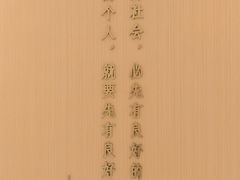 社会，必先有良好的
个人，就要先有良好